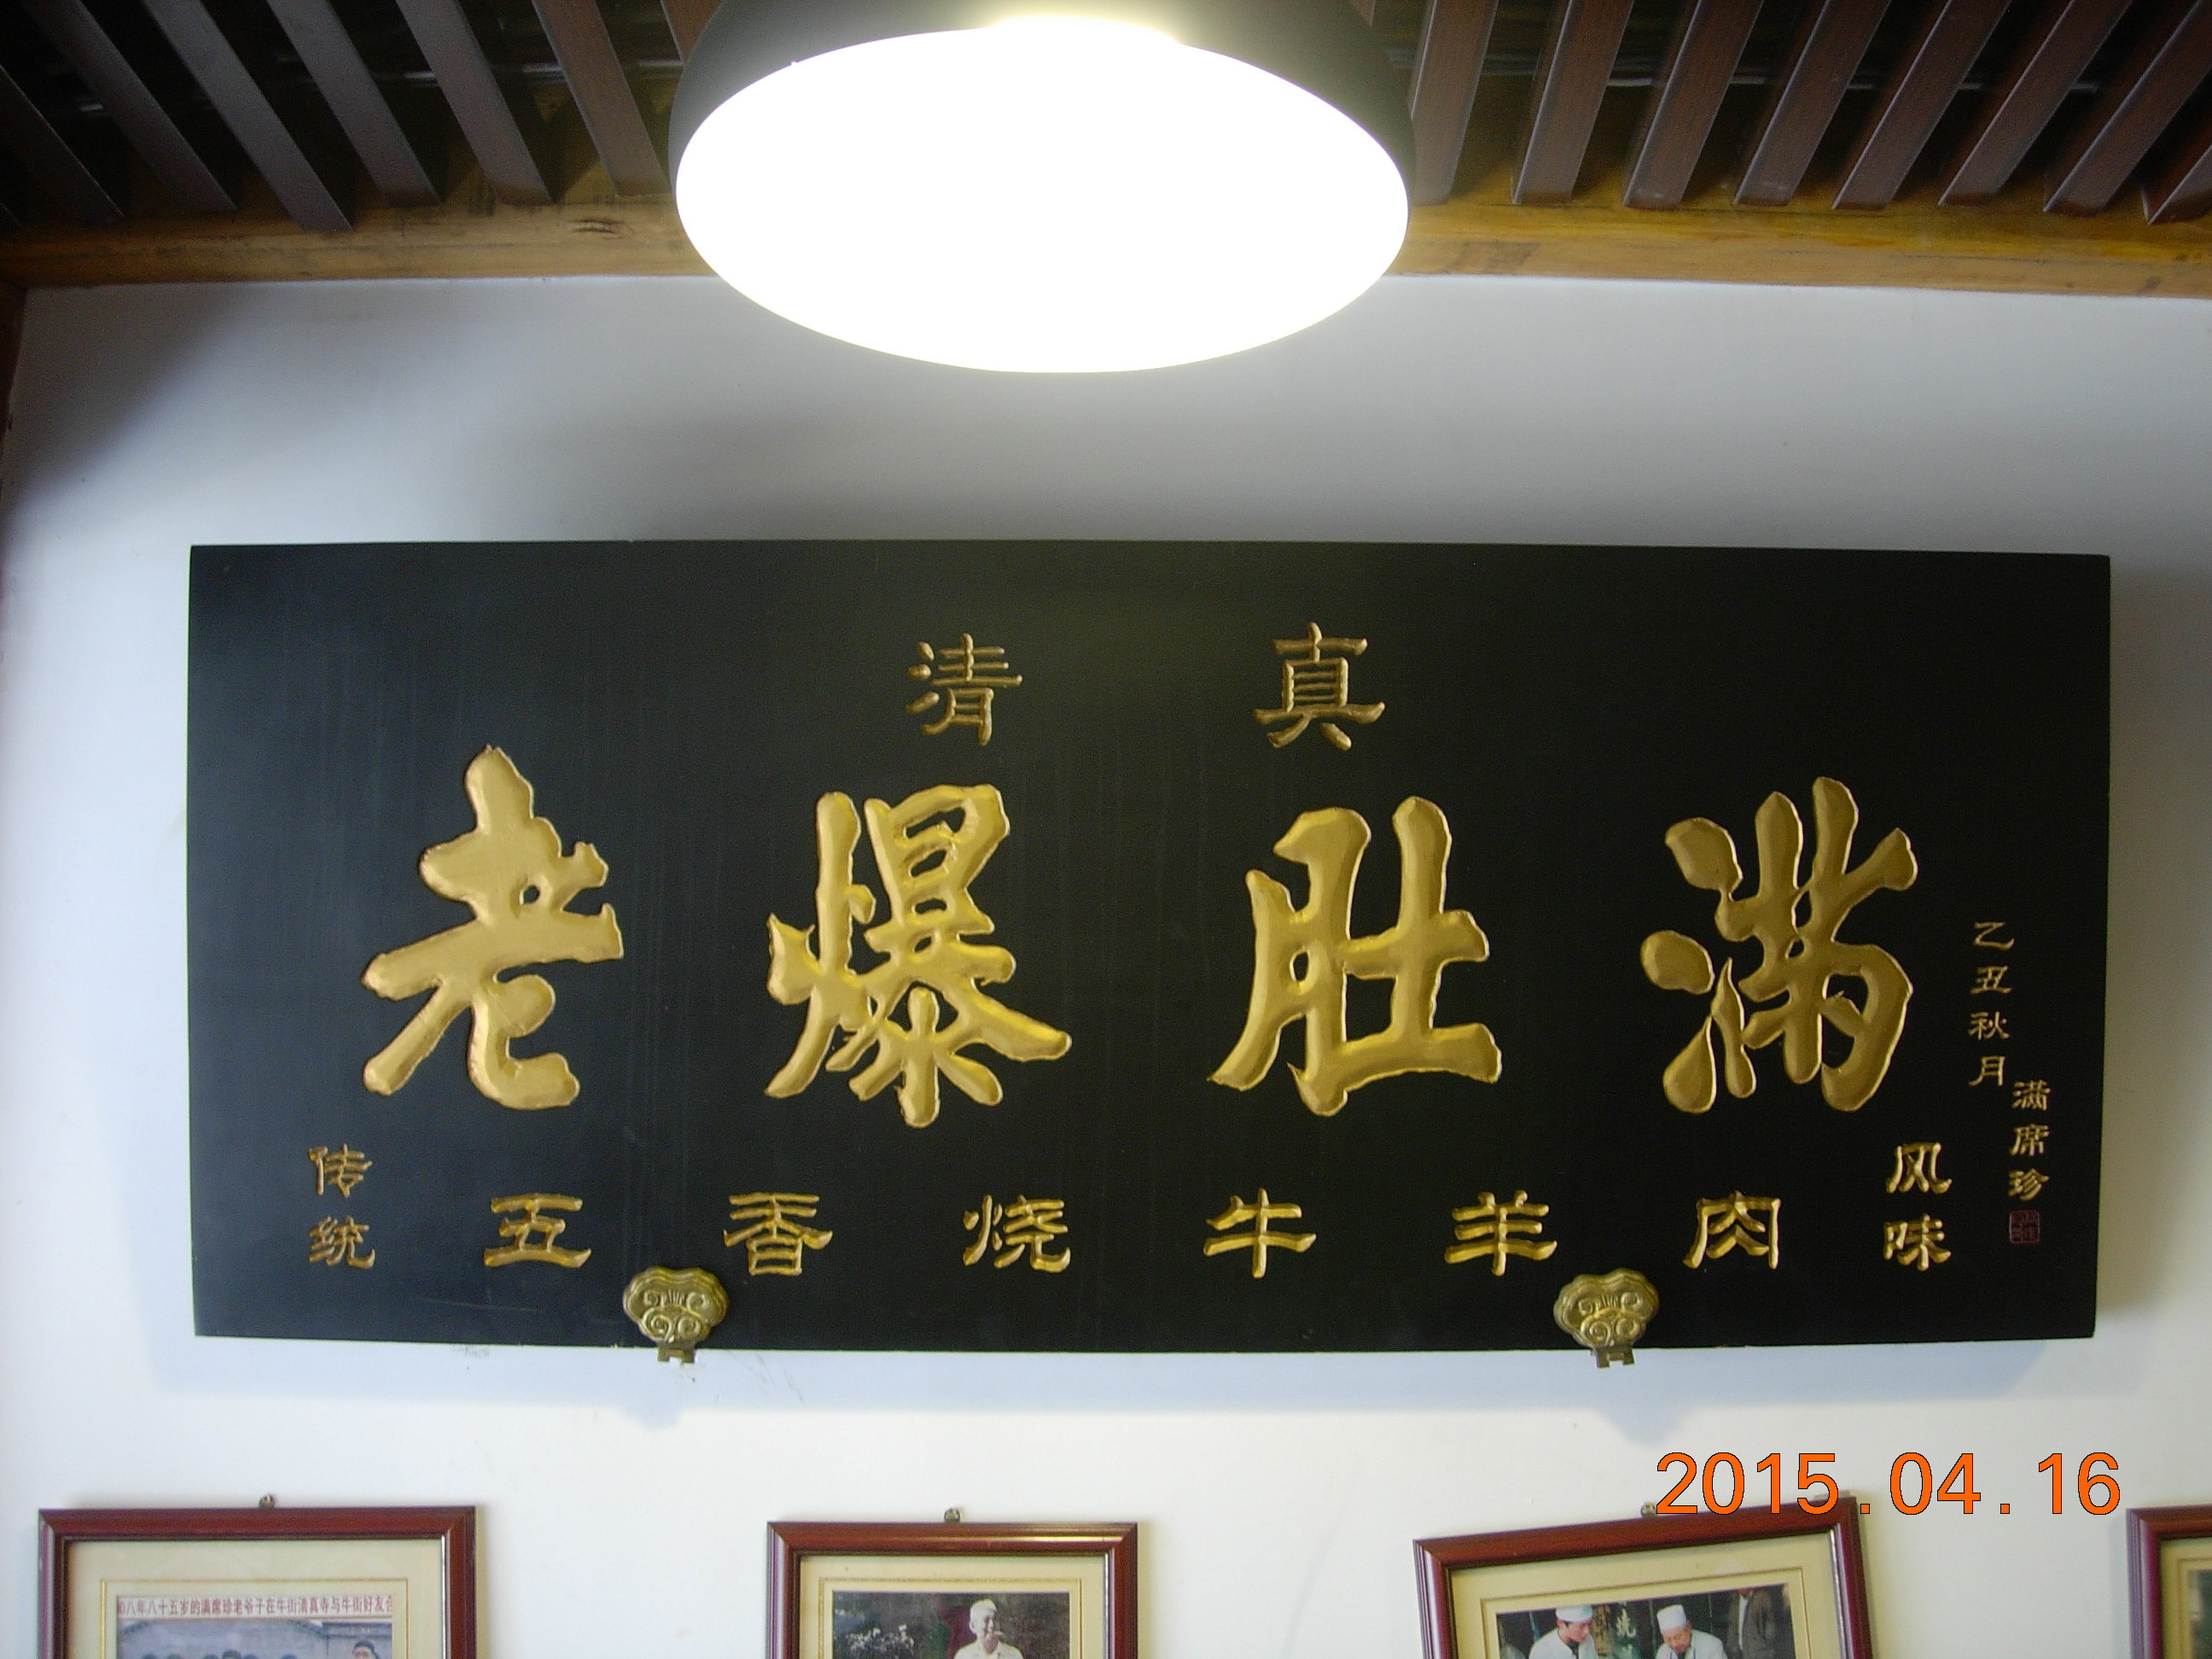 清真
老爆肚满
乙丑秋月
满席珍
传统
五香烧牛羊肉
风味
2015.04.16
八年八十五岁的满席珍老爷子在牛街清真寺与牛街好友合